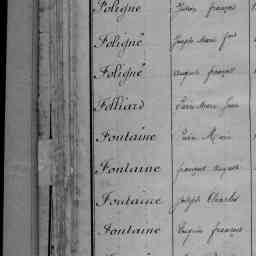 Foligné François
Foligné Joseph Marie
Foligné Auguste François
Folliard Pierre Marie Jean
Fontaine Pierre Marie
Fontaine François Auguste
Fontaine Joseph Charles
Fontaine Eugène François